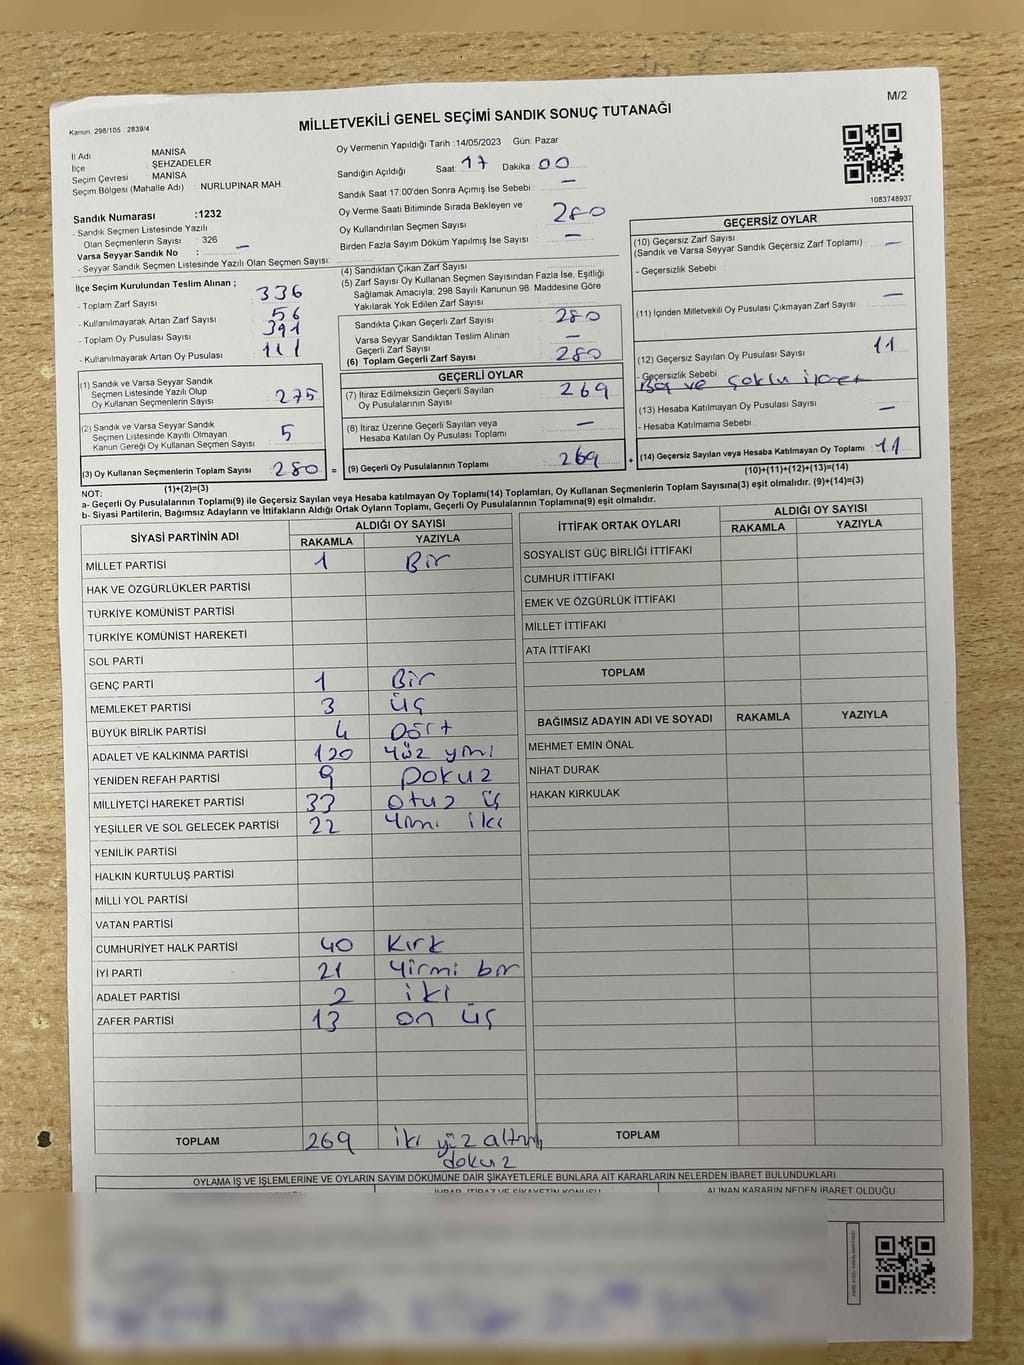 M/2
Kanun: 298/105 . 2839/4
MİLLETVEKİLİ GENEL SEÇİMİ SANDIK SONUÇ TUTANAĞI
İl Adı MANİSA
İlçe : ŞEHZADELER
Seçim Çevresi MANİSA
Seçim Bölgesi (Mahalle Adı) : NURLUPINAR MAH
Sandık Numarası :1232
- Sandık Seçmen Listesinde Yazılı
Olan Seçmenlerin Sayısı : 326
Varsa Seyyar Sandık No : –
- Seyyar Sandık Seçmen Listesinde Yazılı Olan Seçmen Sayısı:
Oy Vermenin Yapıldığı Tarih :14/05/2023 Gün: Pazar
Sandığın Açıldığı Saat: 17 Dakika : 00
Sandık Saat 17:00'den Sonra Açımış İse Sebebi : –
Oy Verme Saati Bitiminde Sırada Bekleyen ve
Oy Kullandırılan Seçmen Sayısı 280
Birden Fazla Sayım Döküm Yapılmış İse Sayısı : –
1083748937
İlçe Seçim Kurulundan Teslim Alınan ;
- Toplam Zarf Sayısı : 336
- Kullanılmayarak Artan Zarf Sayısı : 56
- Toplam Oy Pusulası Sayısı : 391
- Kullanılmayarak Artan Oy Pusulası : 111
(1) Sandık ve Varsa Seyyar Sandık
Seçmen Listesinde Yazılı Olup
Oy Kullanan Seçmenlerin Sayısı : 275
(2) Sandık ve Varsa Seyyar Sandık
Seçmen Listesinde Kayıtlı Olmayan
Kanun Gereği Oy Kullanan Seçmen Sayısı : 5
(3) Oy Kullanan Seçmenlerin Toplam Sayısı : 280 =
(1)+(2)=(3)
(4) Sandıktan Çıkan Zarf Sayısı
(5) Zarf Sayısı Oy Kullanan Seçmen Sayısından Fazla İse, Eşitliği
Sağlamak Amacıyla, 298 Sayılı Kanunun 98. Maddesine Göre
Yakılarak Yok Edilen Zarf Sayısı :
Sandıkta Çıkan Geçerli Zarf Sayısı : 280
Varsa Seyyar Sandıktan Teslim Alınan
Geçerli Zarf Sayısı : –
(6) Toplam Geçerli Zarf Sayısı : 280
GEÇERLİ OYLAR
(7) İtiraz Edilmeksizin Geçerli Sayılan
Oy Pusulalarının Sayısı : 269
(8) İtiraz Üzerine Geçerli Sayılan veya
Hesaba Katılan Oy Pusulası Toplamı : –
(9) Geçerli Oy Pusulalarının Toplamı : 269 +
GEÇERSİZ OYLAR
(10) Geçersiz Zarf Sayısı
(Sandık ve Varsa Seyyar Sandık Geçersiz Zarf Toplamı) : –
- Geçersizlik Sebebi :
(11) İçinden Milletvekili Oy Pusulası Çıkmayan Zarf Sayısı : –
(12) Geçersiz Sayılan Oy Pusulası Sayısı : 11
- Geçersizlik Sebebi :
Boş ve çoklu
(13) Hesaba Katılmayan Oy Pusulası Sayısı : –
- Hesaba Katılmama Sebebi :
(14) Geçersiz Sayılan veya Hesaba Katılmayan Oy Toplamı : 11
(10)+(11)+(12)+(13)=(14)
NOT:
a- Geçerli Oy Pusulalarının Toplamı(9) ile Geçersiz Sayılan veya Hesaba katılmayan Oy Toplamı(14) Toplamları, Oy Kullanan Seçmenlerin Toplam Sayısına(3) eşit olmalıdır. (9)+(14)=(3)
b- Siyasi Partilerin, Bağımsız Adayların ve İttifakların Aldığı Ortak Oyların Toplamı, Geçerli Oy Pusulalarının Toplamına(9) eşit olmalıdır.
SİYASİ PARTİNİN ADI ALDIĞI OY SAYISI
RAKAMLA YAZIYLA
MİLLET PARTİSİ 1 Bir
HAK VE ÖZGÜRLÜKLER PARTİSİ
TÜRKİYE KOMÜNİST PARTİSİ
TÜRKİYE KOMÜNİST HAREKETİ
SOL PARTİ
GENÇ PARTİ 1 Bir
MEMLEKET PARTİSİ 3 üç
BÜYÜK BİRLİK PARTİSİ 4 Dört
ADALET VE KALKINMA PARTİSİ 120 Yüz yrmi
YENİDEN REFAH PARTİSİ 9 Dokuz
MİLLİYETÇİ HAREKET PARTİSİ 33 otuz üç
YEŞİLLER VE SOL GELECEK PARTİSİ 22 Yrmi iki
YENİLİK PARTİSİ
HALKIN KURTULUŞ PARTİSİ
MİLLİ YOL PARTİSİ
VATAN PARTİSİ
CUMHURİYET HALK PARTİSİ 40 Kırk
İYİ PARTİ 21 Yirmi bir
ADALET PARTİSİ 2 iki
ZAFER PARTİSİ 13 on üç
TOPLAM 269 iki yüz altmış
dokuz
İTTİFAK ORTAK OYLARI ALDIĞI OY SAYISI
RAKAMLA YAZIYLA
SOSYALİST GÜÇ BİRLİĞİ İTTİFAKI
CUMHUR İTTİFAKI
EMEK VE ÖZGÜRLÜK İTTİFAKI
MİLLET İTTİFAKI
ATA İTTİFAKI
TOPLAM
BAĞIMSIZ ADAYIN ADI VE SOYADI RAKAMLA YAZIYLA
MEHMET EMİN ÖNAL
NİHAT DURAK
HAKAN KIRKULAK
TOPLAM
OYLAMA İŞ VE İŞLEMLERİNE VE OYLARIN SAYIM DÖKÜMÜNE DAİR ŞİKAYETLERLE BUNLARA AİT KARARLARIN NELERDEN İBARET BULUNDUKLARI
İHBAR, İTİRAZ VE ŞİKAYETİN KONUSU ALINAN KARARIN NEDEN İBARET OLDUĞU